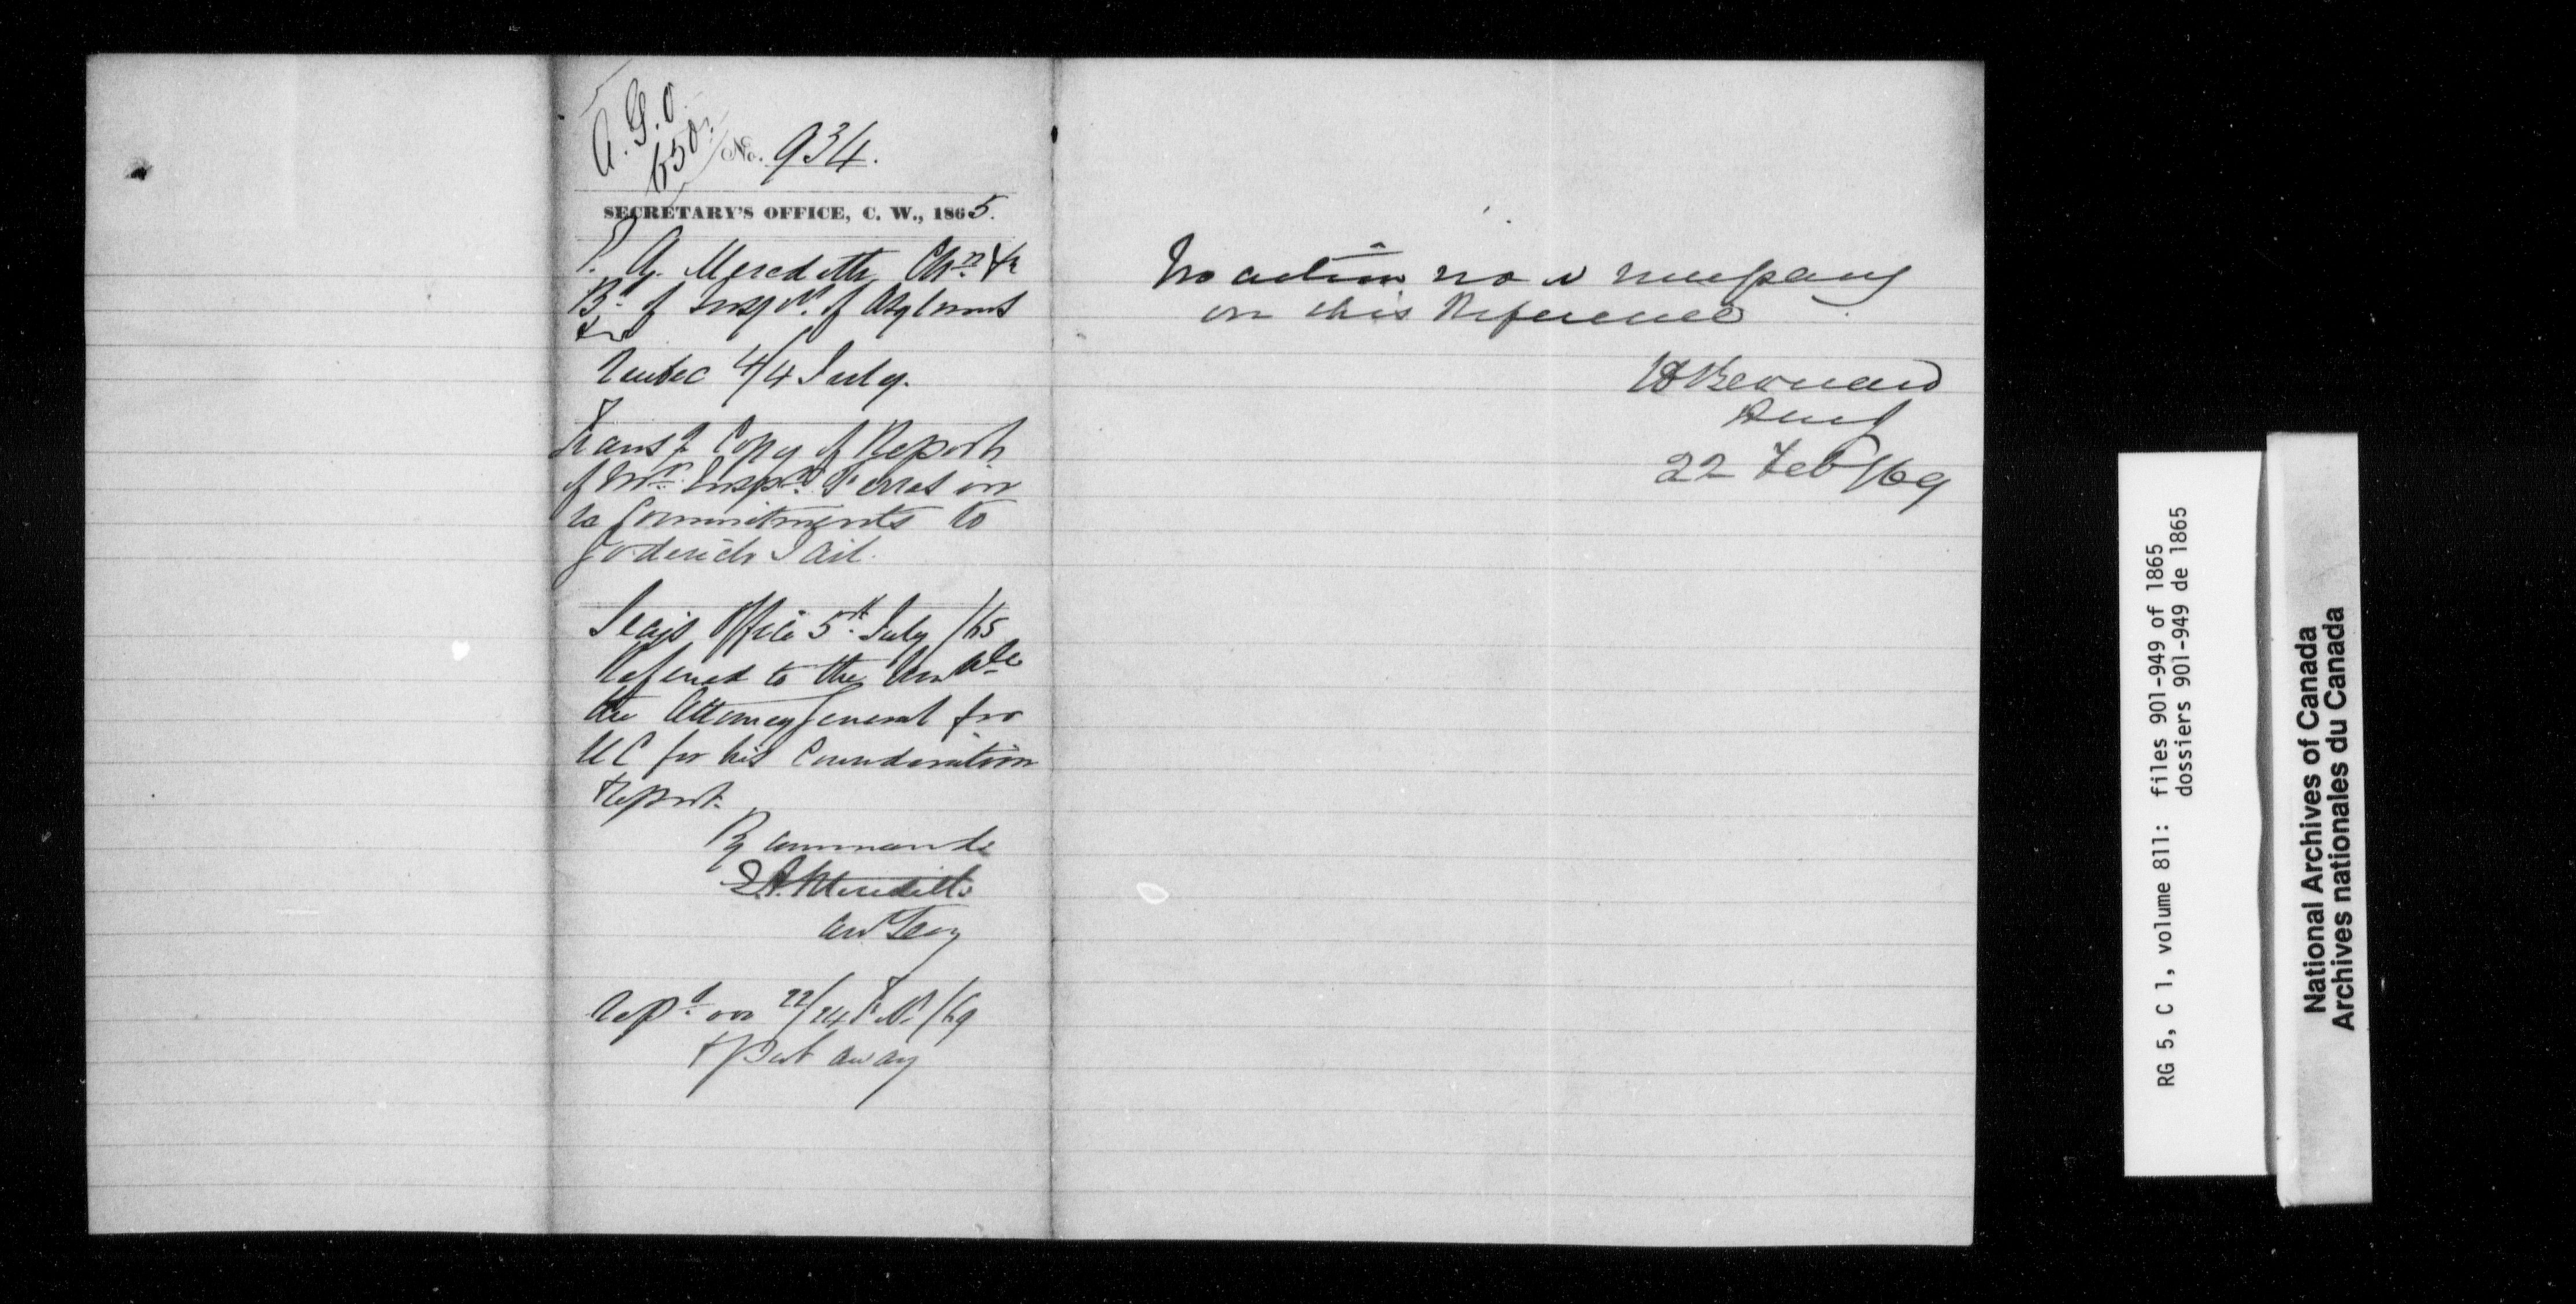 A. G. O
650
No. 934.
SECRETARY'S OFFICE, C. W., 1865.
E. A. Meredith, Chn &c
Bd of Insprs of Asylums
&c
Quebec 4/4 July.
Transg Copy of Report
of Mr. Inspr. Ferres on
to Commitments to
Goderich Jail.
Secy's Office 5th July /65
Refered to the Honble
the Attorney General for
UC for his Consideration
& Report.
By Command
E. A. Meredith
Asst Secy
Repd on 22/24 Feb /69
& Put away
No action now necessary
on this Reference
H Bernard
22 Feb /69
RG 5, C 1, volume 811: files 901-949 of 1865
dossiers 901-949 de 1865
National Archives of Canada
Archives nationales du Canada